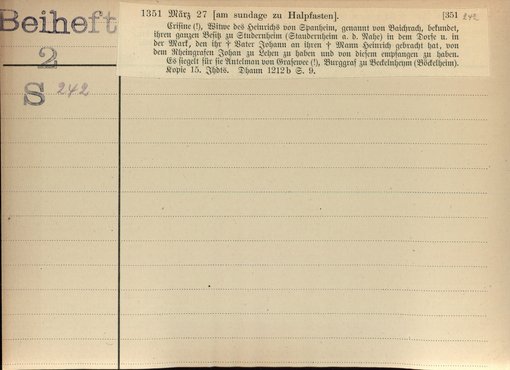 Beiheft
2
S 242
1351 März 27 [am sundage zu Halpfasten]. [351 242
Cristine (!), Witwe des Heinrichs von Spanheim, genannt von Baichrach, bekundet,
ihren ganzen Besitz zu Studernheim (Staudernheim a. d. Nahe) in dem Dorfe u. in
der Mark, den ihr † Vater Johann an ihren † Mann Heinrich gebracht hat, von
dem Rheingrafen Johan zu Lehen zu haben und von diesem empfangen zu haben.
Es siegelt für sie Antelman von Grasewec (!), Burggraf zu Beckelnheym (Böckelheim).
Kopie 15. Jhdts. Dhaun 1212b S. 9.